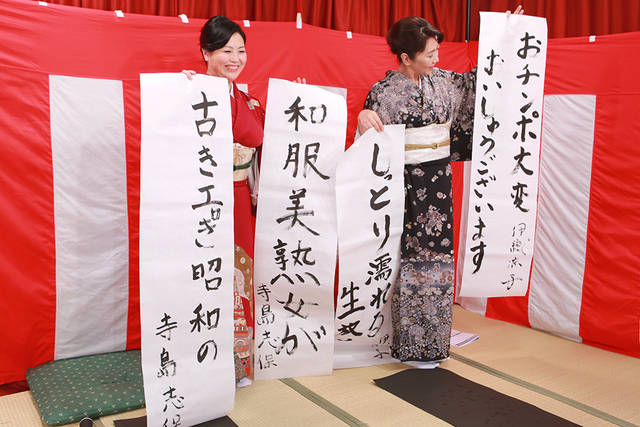 おチンポ大変
おいしゅうございます
伊織涼子
しっとり濡れる
生熟
子
和服美熟女が
寺島志保
古き
昭和の
寺島志保